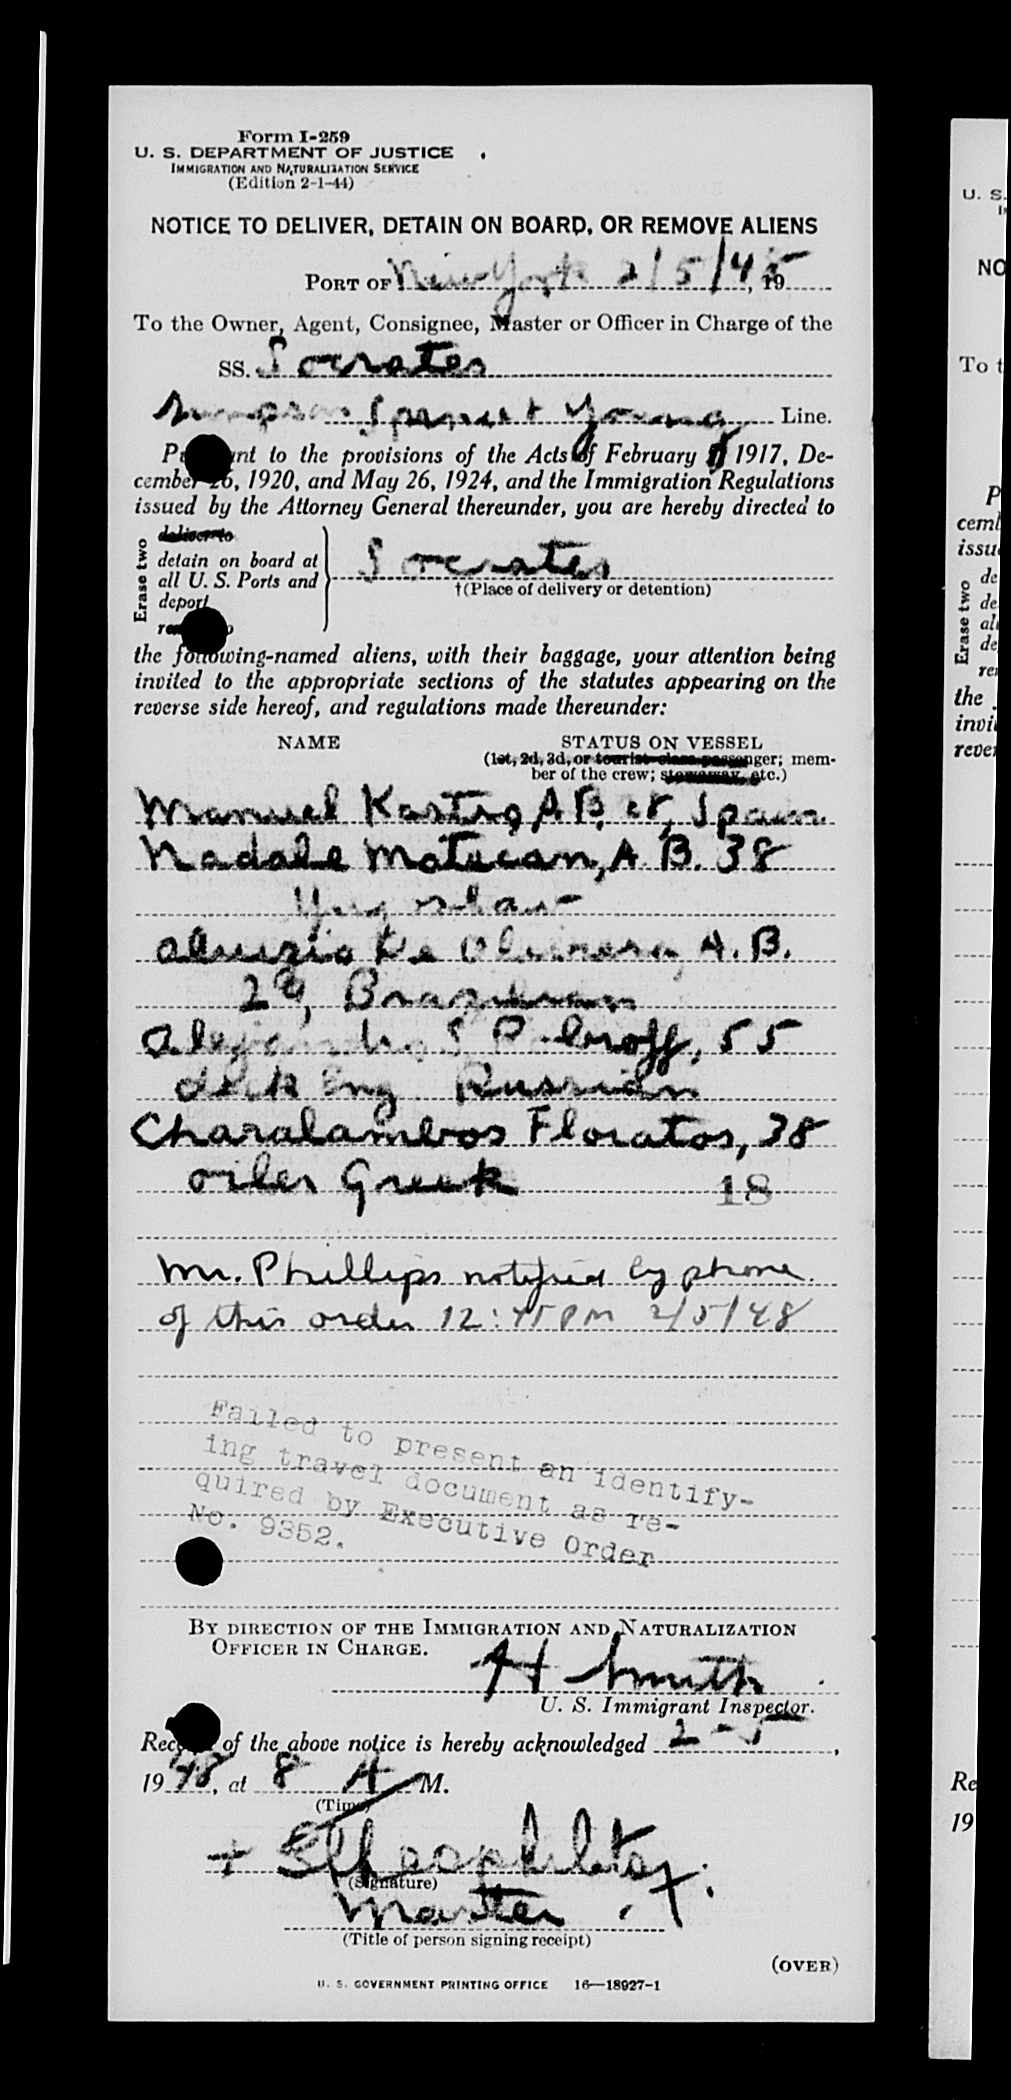 Form I-259
U. S. DEPARTMENT OF JUSTICE
IMMIGRATION AND NATURALIZATION SERVICE
(Edition 2-1-44)
NOTICE TO DELIVER, DETAIN ON BOARD, OR REMOVE ALIENS
PORT OF New York 2/5/48, 19
To the Owner, Agent, Consignee, Master or Officer in Charge of the
SS. Socrates
Simpson Spence & Young Line.
Pursuant to the provisions of the Acts of February 5, 1917, De-
cember 26, 1920, and May 26, 1924, and the Immigration Regulations
issued by the Attorney General thereunder, you are hereby directed to
Erase two
deliver to
detain on board at
all U. S. Ports and
deport
remove to
Socrates
†(Place of delivery or detention)
the following-named aliens, with their baggage, your attention being
invited to the appropriate sections of the statutes appearing on the
reverse side hereof, and regulations made thereunder:
NAME STATUS ON VESSEL
(1st, 2d, 3d, or tourist class passenger; mem-
ber of the crew; stowaway, etc.)
Manuel Kastro, A B, Spain
Nadale Matucan, A. B. 38
Yugoslav
Aluizio De Oliveira, A. B.
29, Brazilian
Alejandro S 55
deck Eng Russian
Charalambos Floratos, 38
oiler Greek 18
Mr. Phillips notified by phone
of this order 12:45 PM 2/5/48
Failed to present an identify-
ing travel document as re-
quired by Executive Order
No. 9352.
BY DIRECTION OF THE IMMIGRATION AND NATURALIZATION
OFFICER IN CHARGE.
H Smith
U. S. Immigrant Inspector.
Receipt of the above notice is hereby acknowledged 2-5,
19 48, at 8 A M.
(Time)
(Signature)
Master
(Title of person signing receipt)
(OVER)
U. S. GOVERNMENT PRINTING OFFICE 16—18927-1